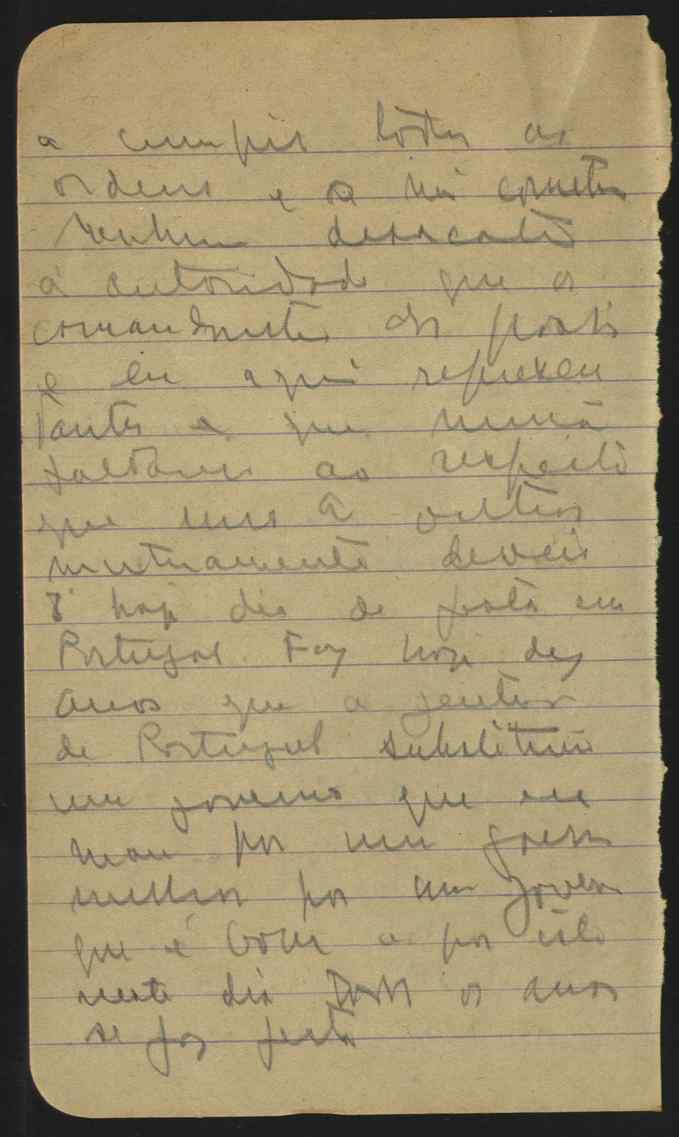 a cumprir todas as
ordens e a não cometer
nenhum desacato
á autoridade que o
comandante do posto
e eu aqui represen
tantes e que nunca
faltareis ao respeito
que uns a outros
mutuamente deveis
É hoje dia de festa em
Portugal. Faz hoje dez
anos que a gente
de Portugal substituiu
um governo que era
mau por um
melhor por um governo
que é bom e por isto
neste dia todos os anos
se faz festa